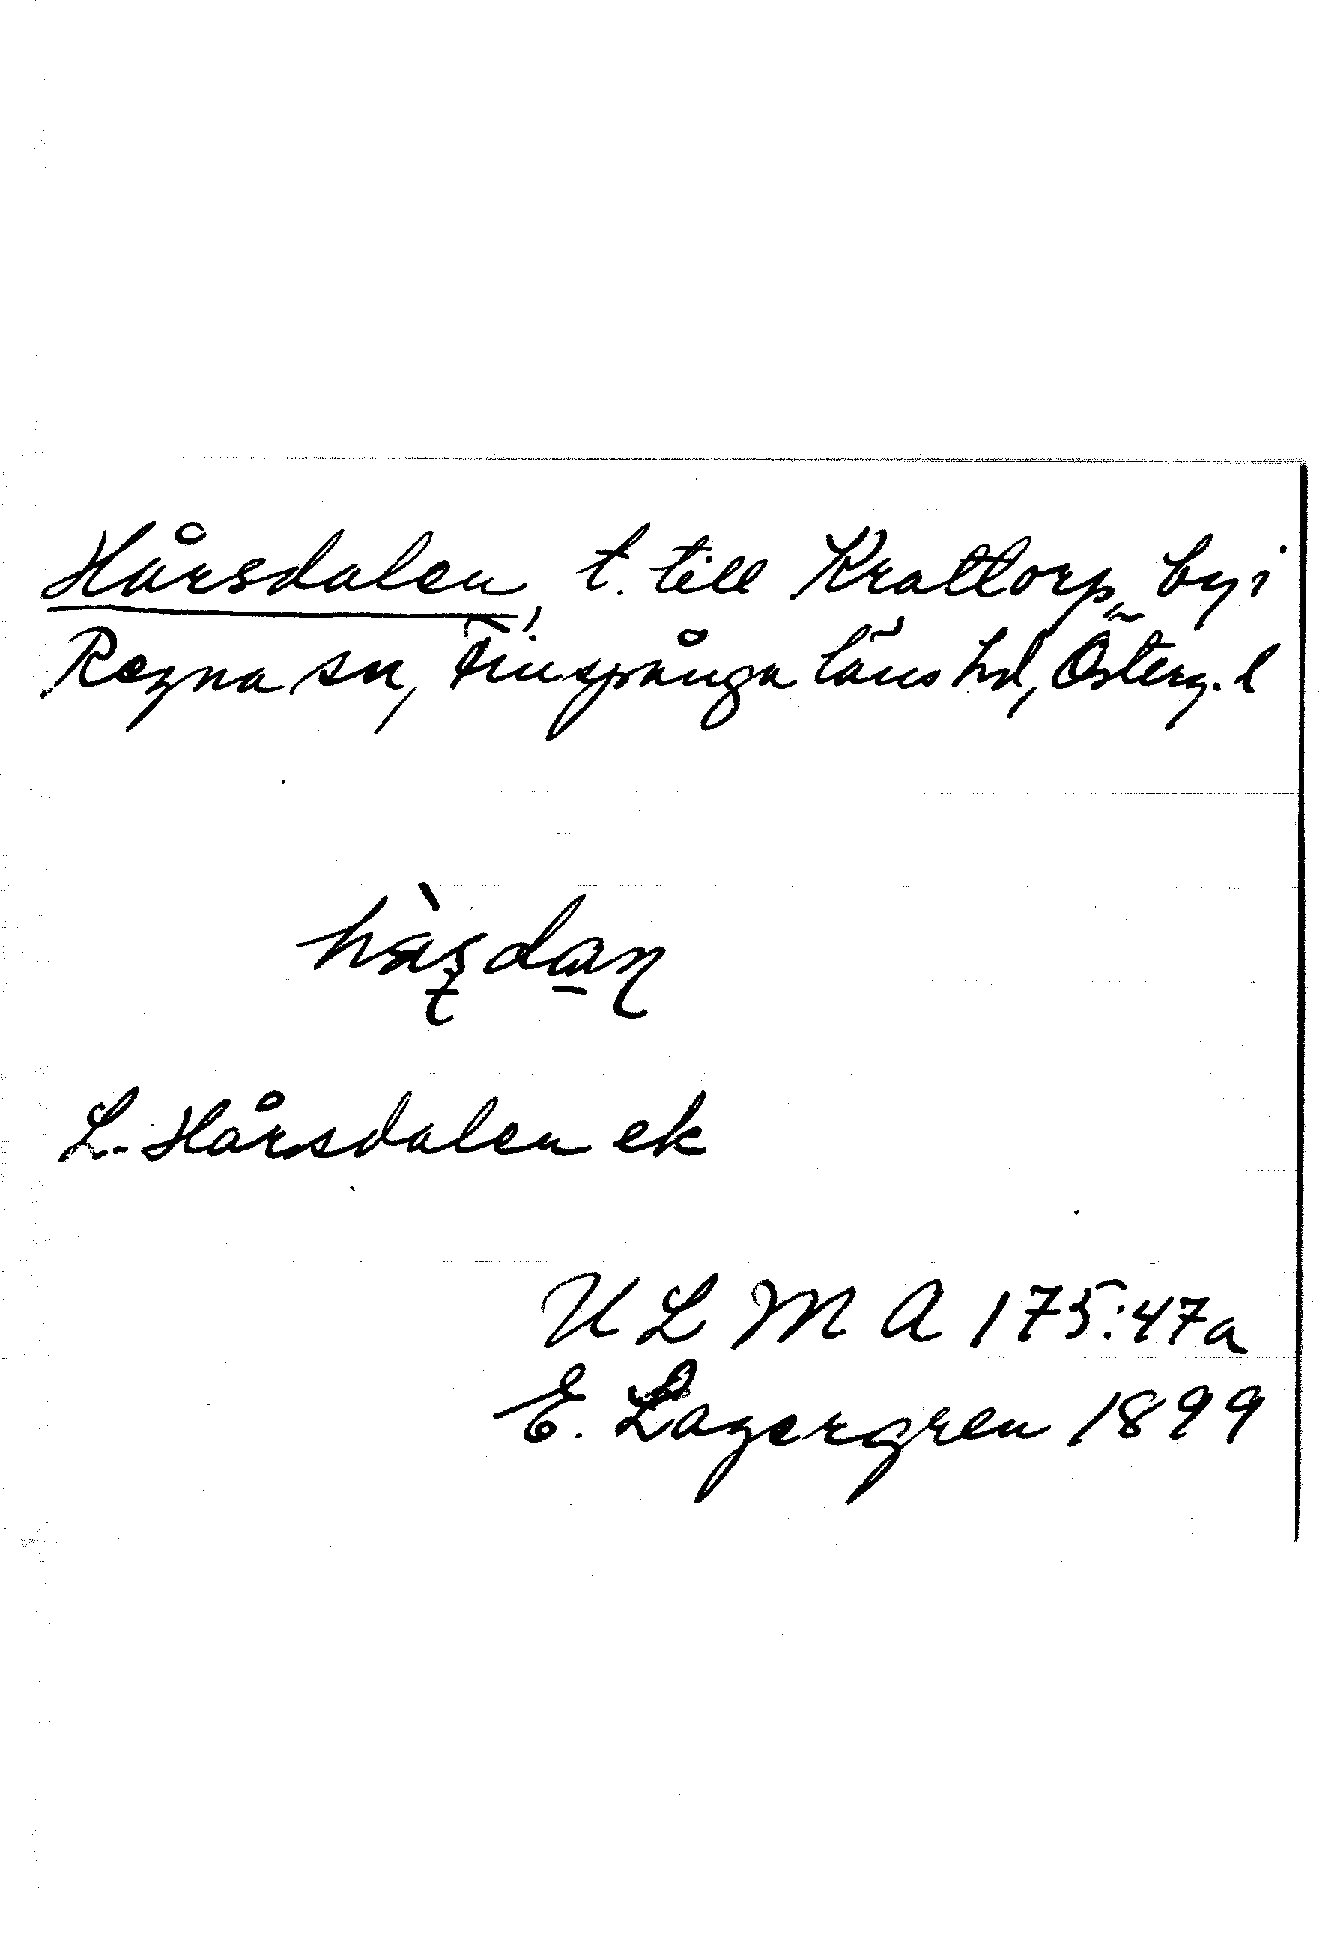 Hårsdalen, t. till Krattorp, by i
Regna sn, Finspånga läns hd, Österg. l
L. Hårsdalen ek
U L M A 175:47a
E. Lagergren 1899